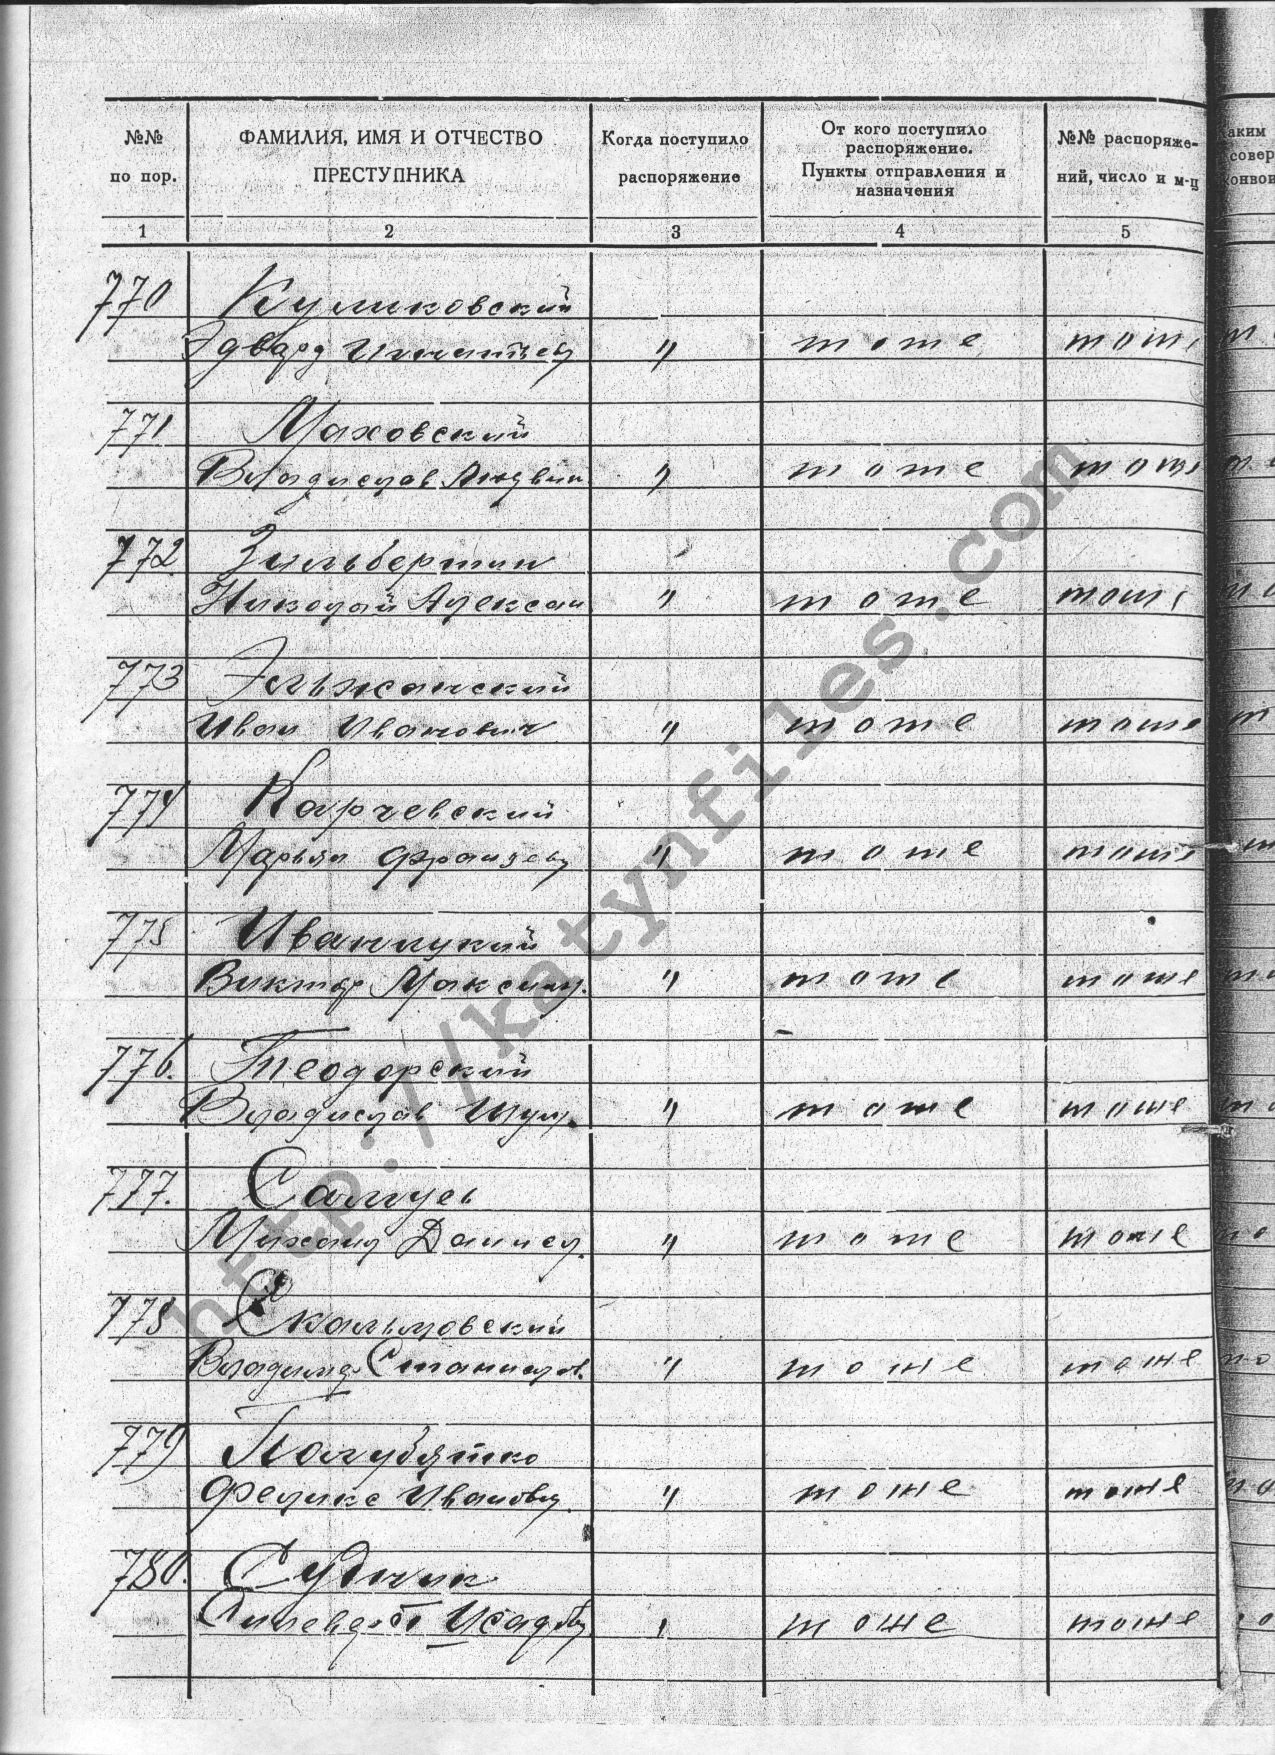 №№ по пор.
ФАМИЛИЯ, ИМЯ И ОТЧЕСТВО ПРЕСТУПНИКА
Когда поступило распоряжение
От кого поступило распоряжение. Пункты отправления и назначения
№№ распоряже-ний, число и м-ц
аким
совер
конвои
1 2 3 4 5
770 Куликовский
Эдвард Игнатьев " тоже тоже
771 Маховский
Владислав Людвик " тоже тоже
772 Зильберштин
Николай Алексан " тоже тоже
773 Эльжановский
Иван Иванович " тоже тоже
774 Карчевский
Марьян Францев " тоже тоже
775 Иваницкий
Виктор Максим. " тоже тоже
776. Теодорский
Владислав Шум. " тоже тоже
777. Самусь
Михаил Даниел. " тоже тоже
778 Скальмовский
Владимир Станислав. " тоже тоже
779 Полубятко
Феликс Иванов. " тоже тоже
780. Судник
" тоже тоже
http://katynfiles.com